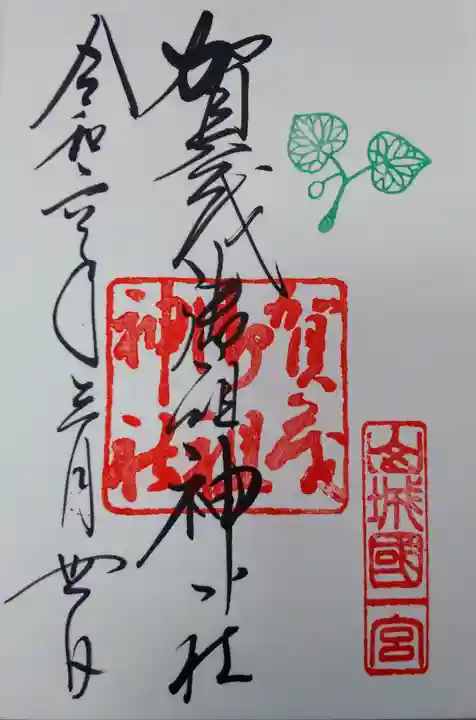 山城國一宮
賀茂御祖神社
賀茂
御祖
神社
令和六年三月四日